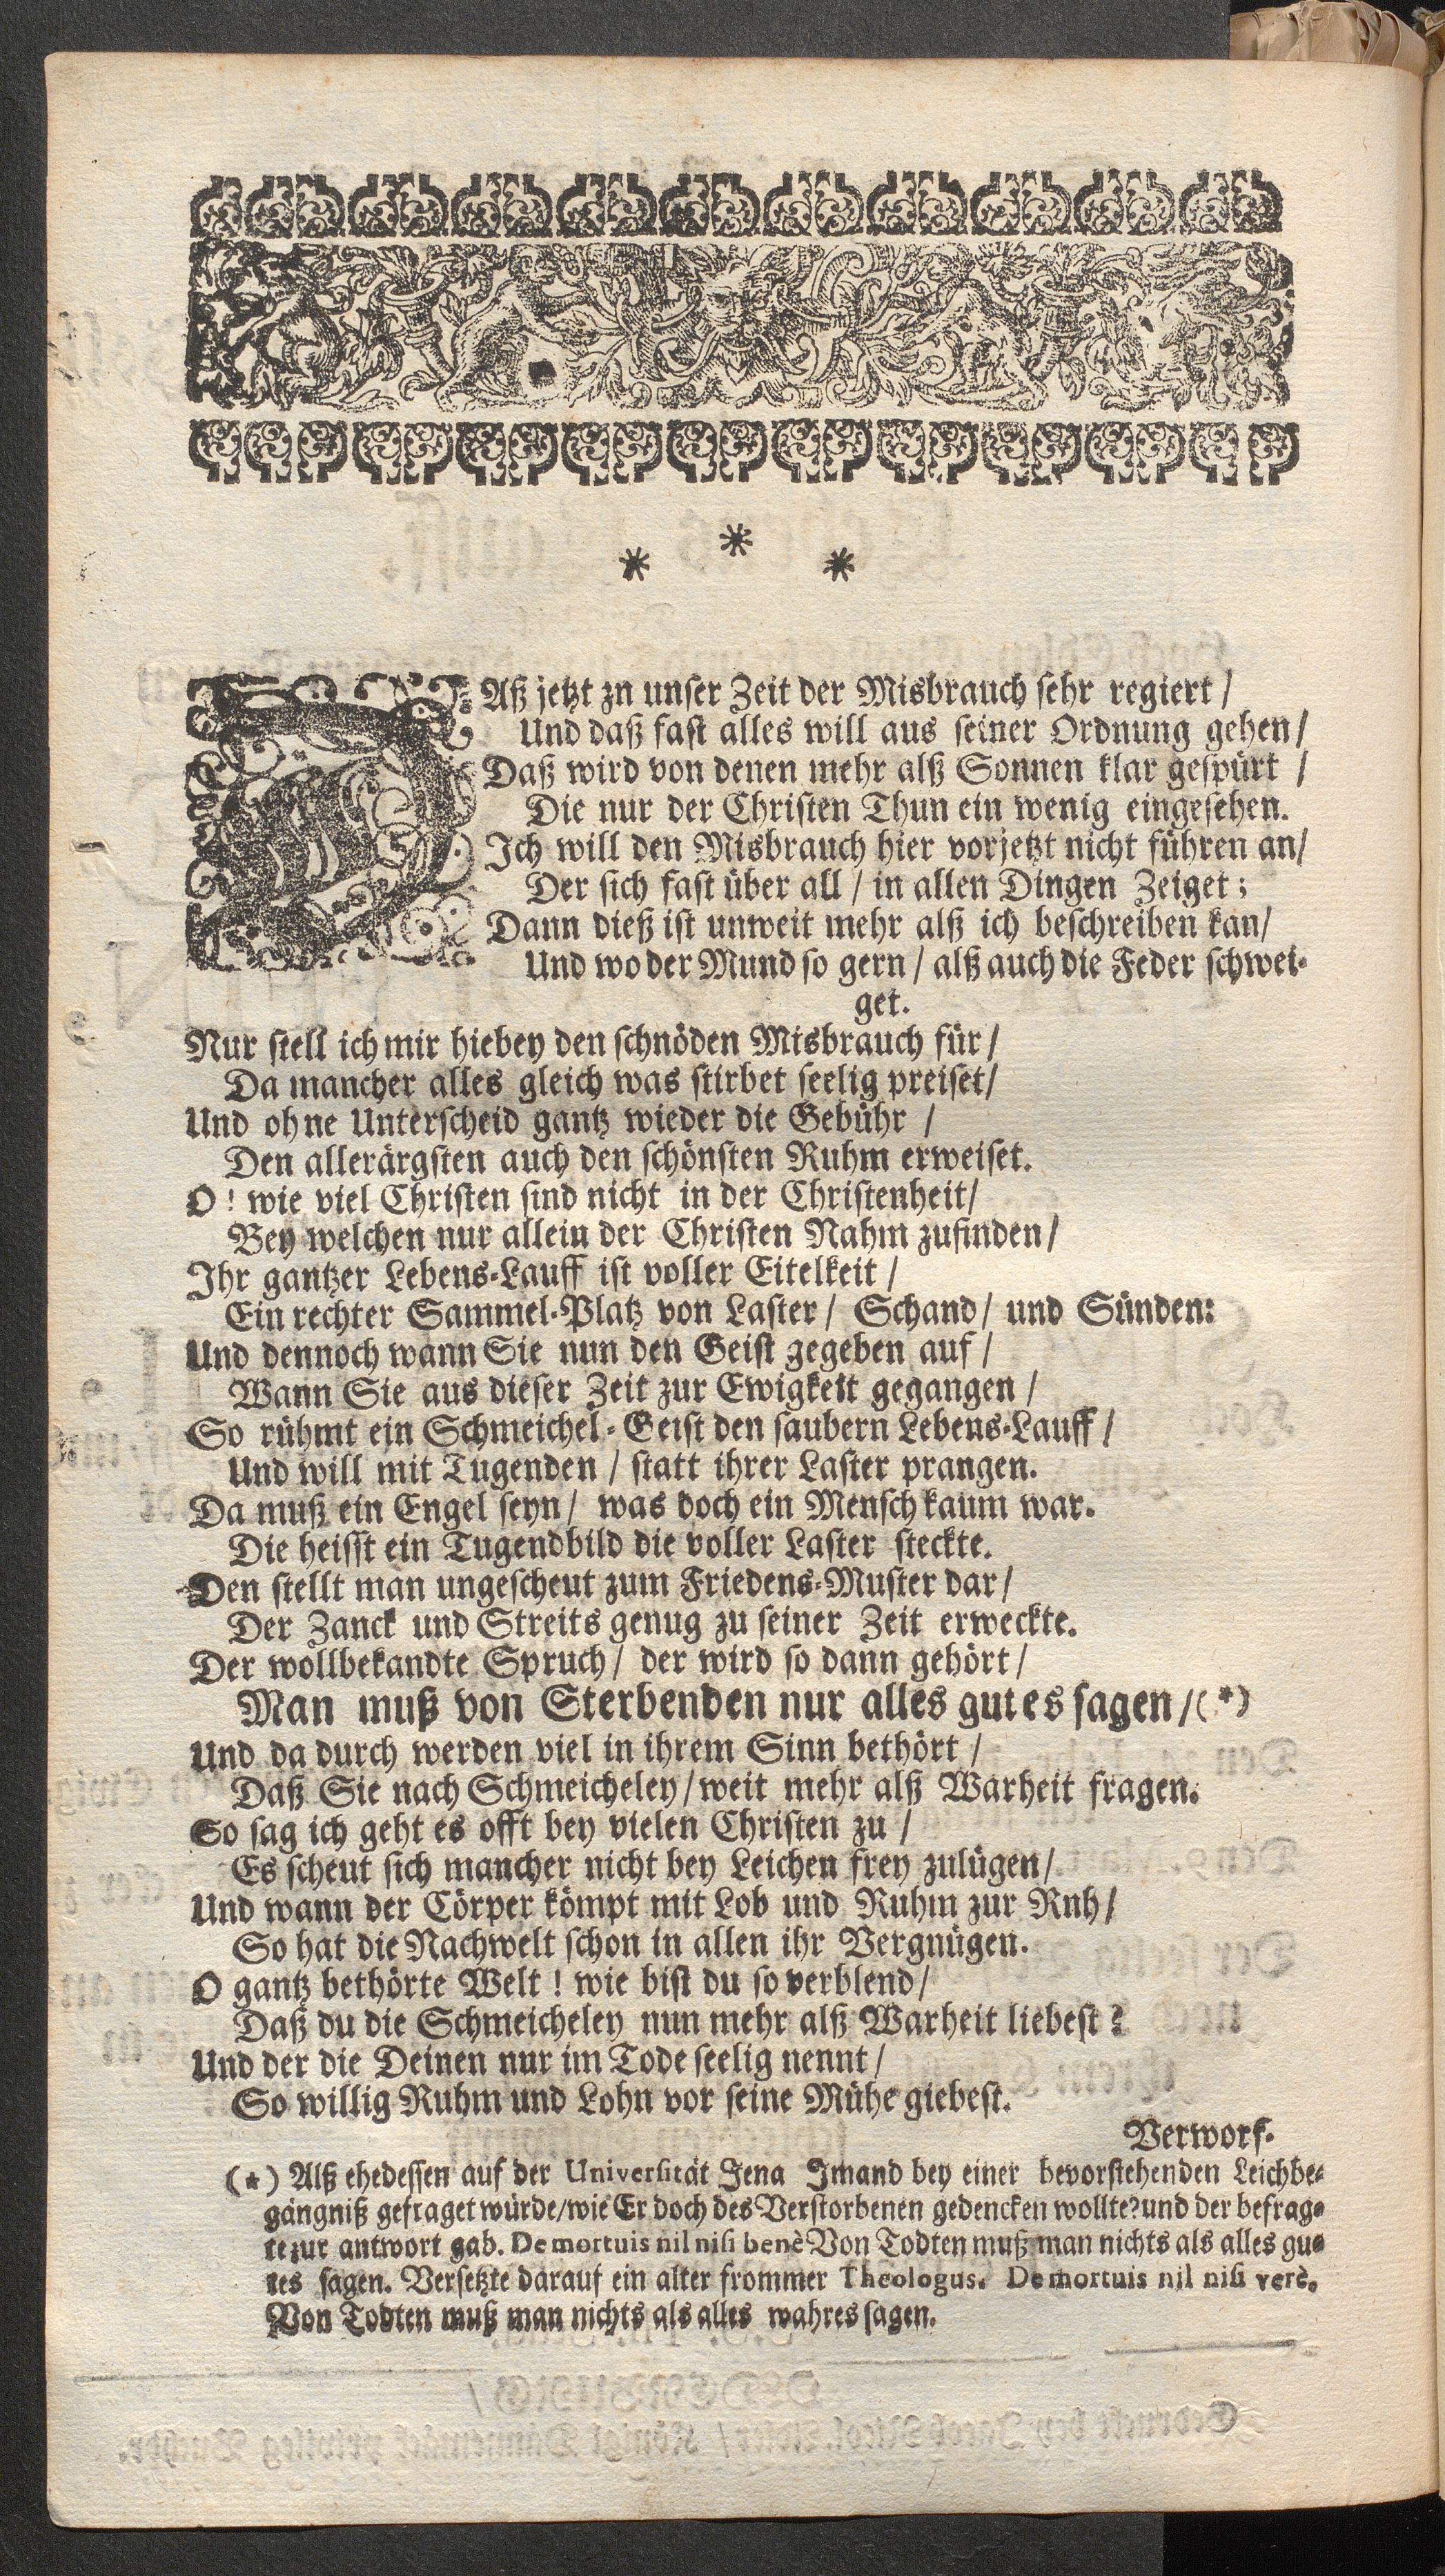 * * *
DAß jetzt zn unser Zeit der Misbrauch sehr regiert /
Und daß fast alles will aus seiner Ordnung gehen /
Daß wird von denen mehr alß Sonnen klar gespürt /
Die nur der Christen Thun ein wenig eingesehen.
Ich will den Misbrauch hier vorjetzt nicht führen an/
Der sich fast über all / in allen Dingen Zeiget;
Dann dieß ist unweit mehr alß ich beschreiben kan/
Und wo der Mund so gern / alß auch die Feder schwei-
get.
Nur stell ich mir hiebey den schnöden Misbrauch für /
Da mancher alles gleich was stirbet seelig preiset/
Und ohne Unterscheid gantz wieder die Gebühr /
Den allerärgsten auch den schönsten Ruhm erweiset.
O! wie viel Christen sind nicht in der Christenheit/
Bey welchen nur allein der Christen Nahm zufinden/
Ihr gantzer Lebens-Lauff ist voller Eitelkeit /
Ein rechter Sammel-Platz von Laster / Schand / und Sünden:
Und dennoch wann Sie nun den Geist gegeben auf /
Wann Sie aus dieser Zeit zur Ewigkeit gegangen /
So rühmt ein Schmeichel-Geist den saubern Lebens-Lauff /
Und will mit Tugenden / statt ihrer Laster prangen.
Da muß ein Engel seyn / was doch ein Mensch kaum war.
Die heisst ein Tugendbild die voller Laster steckte.
Den stellt man ungescheut zum Friedens-Muster dar /
Der Zanck und Streits genug zu seiner Zeit erweckte.
Der wollbekandte Spruch / der wird so dann gehört /
Man muß von Sterbenden nur alles gutes sagen / (*)
Und da durch werden viel in ihrem Sinn bethört /
Daß Sie nach Schmeicheley / weit mehr alß Warheit fragen.
So sag ich geht es offt bey vielen Christen zu /
Es scheut sich mancher nicht bey Leichen frey zulügen/
Und wann der Cörper kömpt mit Lob und Ruhm zur Rnh /
So hat die Nachwelt schon in allen ihr Vergnügen.
O gantz bethörte Welt! wie bist du so verblend/
Daß du die Schmeicheley nun mehr alß Warheit liebest?
Und der die Deinen nur im Tode seelig nennt /
So willig Ruhm und Lohn vor seine Mühe giebest.
Verworf-
(*) Alß ehedessen auf der Universität Jena Imand bey einer bevorstehenden Leichbe-
gängniß gefraget würde/wie Er doch des Verstorbenen gedencken wollte? und der befrag-
te zur antwort gab. De mortuis nil nisi benè Von Todten muß man nichts als alles gu-
tes sagen. Versetzte darauf ein alter frommer Theologus. De mortuis nil nisi verè.
Von Todten muß man nichts als alles wahres sagen.